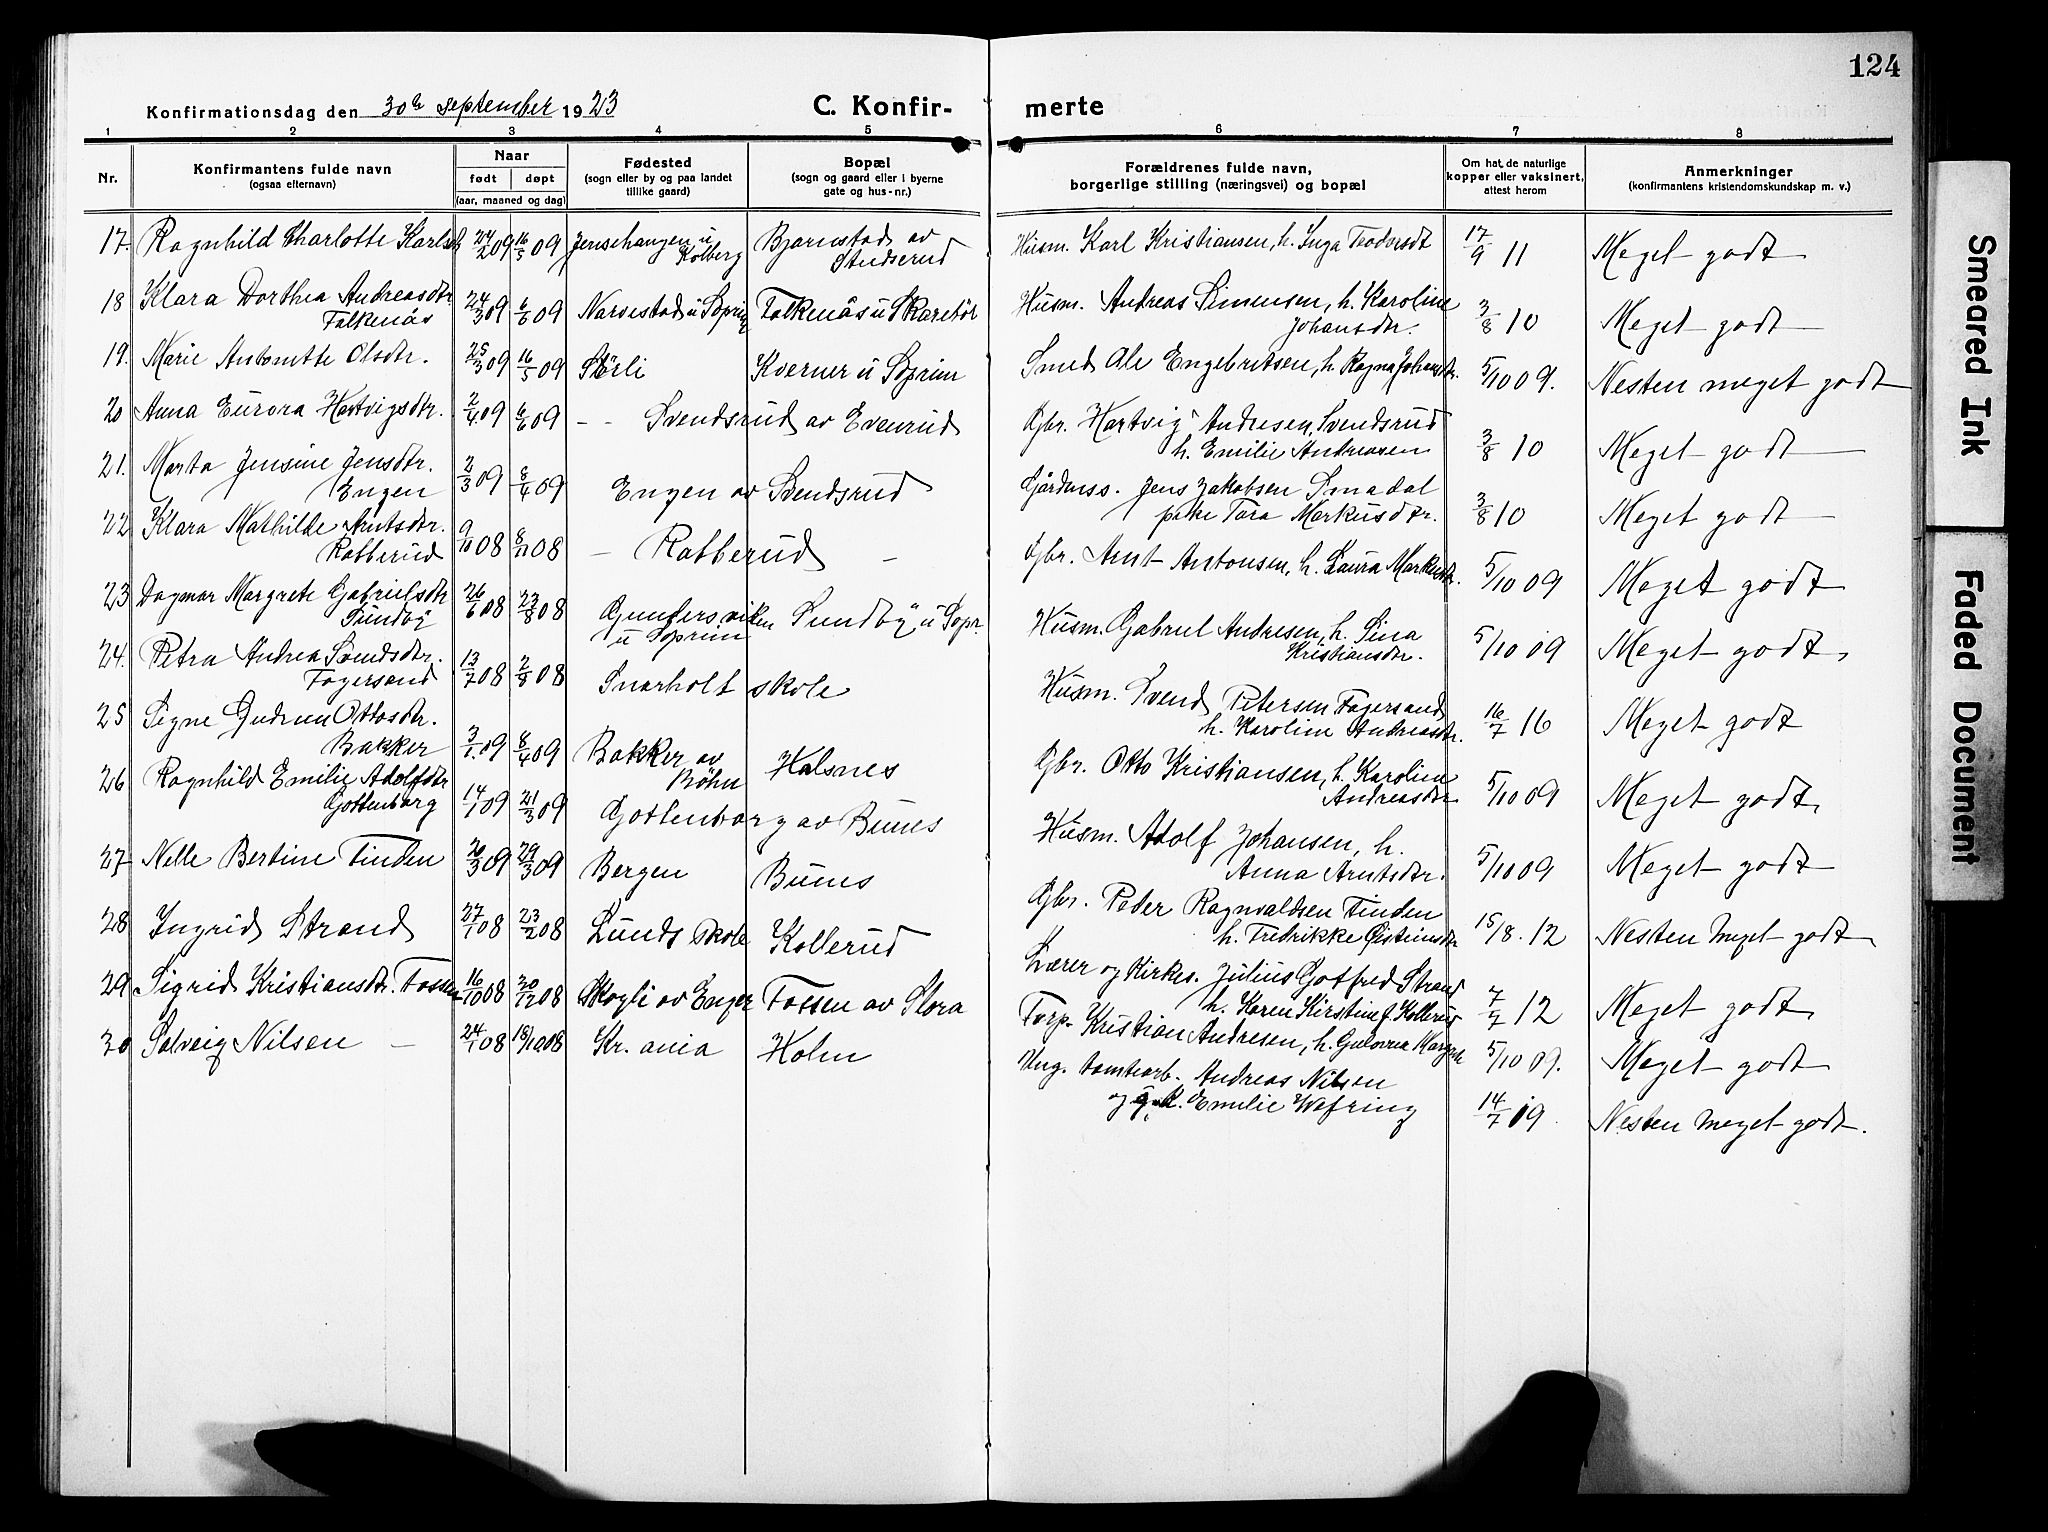 124
Konfirmationsdag den 30te september 1923
C. Konfirmerte
1 2 3 4 5 6 7 8
Nr.
Konfirmantens fulde navn
(ogsaa efternavn)
Naar
født døpt
(aar, maaned og dag)
Fødested
(sogn eller by og paa landet
tillike gaard)
Bopæl
(sogn og gaard eller i byerne
gate og hus-nr.)
Forældrenes fulde navn,
borgerlige stilling (næringsvei) og bopæl
Om hat, de naturlige
kopper eller vaksinert,
attest herom
Anmerkninger
(konfirmantens kristendomskundskap m. v.)
17. Ragnhild Charlotte Karlsdt 24/2 09 16/5 09 Jensehaugen u Kolberg Bjørnstad av Studserud Husm. Karl Kristiansen, h. Inga Teodorsdt 17/9 11 Meget godt
18 Klara Dorthea Andreasdtr. Falkenås 24/3 09 6/6 09 Narvestad u Soprim Falkenås u Skaretør Husm. Andreas Simensen, h. Karoline Johansdtr. 3/8 10 Meget godt
19. Marie Antonette Olsdtr. 25/3 09 16/5 09 Sørli Kverner u Soprim Smed Ole Engebretsen, h. Ragna Johansdtr. 5/10 09. Nesten meget godt
20 Anna Eurora Hartvigsdtr. 2/4 09 6/6 09 - - Svendsrud av Evenrud Gbr. Hartvig Andresen, Svendsrud h. Emilie Andreasen 3/8 10 Meget godt
21. Marta Jensine Jensdtr. Engen 2/3 09 8/4 09 Engen av Svendsrud Gårdmss. Jens Jakobsen Smadal pike Tora Markusdtr. 3/8 10 Meget godt
22 Klara Mathilde Arntsdtr. Rabberud 9/10 08 8/11 08 - Rabberud - Gbr. Arnt Antonsen, h. Laura Markusdtr. 5/10 09 Meget godt
23 Dagmar Margrete Gabrielsdtr Sundby 26/6 08 23/8 08 Gundersviken u Soprim Sundby u Sopr. Husm. Gabriel Andresen, h. Lina Kristiansdtr. 5/10 09 Meget godt,
24. Petra Andrea Svendsdtr. Fagersand 13/7 08 2/8 08 Snarholt skole Husm. Svend Petersen Fagersand h. Karoline Andreasdtr. 16/7 16 Meget godt
25 Signe Gudrun Ottosdtr. Bakker 3/1 09 8/4 09 Bakker av Bøhn Halsnes Gbr. Otto Kristiansen, h. Karoline Andreasdtr 5/10 09 Meget godt,
26 Ragnhild Emilie Adolfsdtr Gottenborg 14/1 09 21/3 09 Gottenborg av Bunes Husm. Adolf Johansen, h. Anna Arntsdtr. 5/10 09 Meget godt
27 Nelle Bertine Tinden 20/3 09 29/3 09 Bergen Bunes Gbr. Peder Ragnvaldsen Tinden h. Fredrikke Eisteinsdtr 15/8. 12 Nesten Meget godt
28 Ingrid Strand 27/1 08 23/2 08 Lunds skole Kollerud Lærer og kirkes. Julius Gotfred Strand h. Karen Kirstine f. Kollerud 7/7 12 Meget godt,
29 Sigrid Kristiansdtr. Fossen 16/10 08 20/12 08 Skogli av Enger Fossen av Slora Torp. Kristian Andresen, h. Gulovna Margrete 5/10 09. Meget godt
30 Solveig Nilsen - 24/1 08 18/10 08 Kr. ania Holm Ung. tomtearb. Andreas Nilsen og g. k. Emilie Wefring 14/7 09 Nesten meget godt.
Smeared Ink
Faded Document